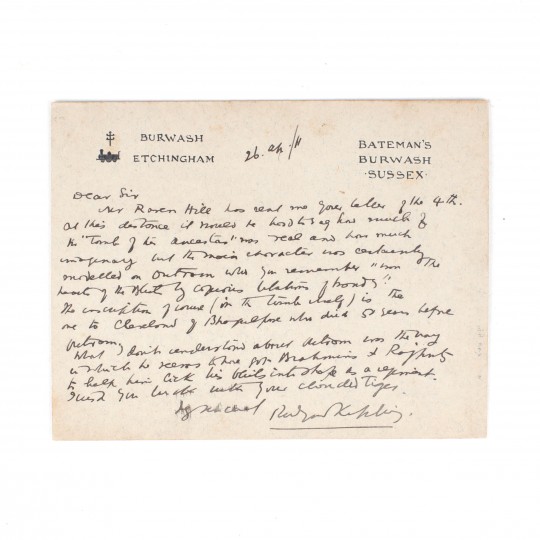 BURWASH
ETCHINGHAM
BATEMAN'S
BURWASH
SUSSEX
Dear Sir
Mr Raven Hill has sent me your letter of the 4th.
At this distance it would be hard to say how much of
the "Tomb of his Ancestor" was real and how much
imaginary but the main character was certainly
modelled on Outram who you remember "won the
hearts of the Bhils by copious libations of brandy".
The inscription of course (on the tomb itself) is the
one to Cleveland of Bhagulpore who died 50 years before
Outram.
What I don't understand about Outram was the way
in which he seems to have got Brahmins & Rajputs
to help him lick his Bhils into shape as a regiment.
I wish you luck with your clouded tiger.
Rudyard Kipling.